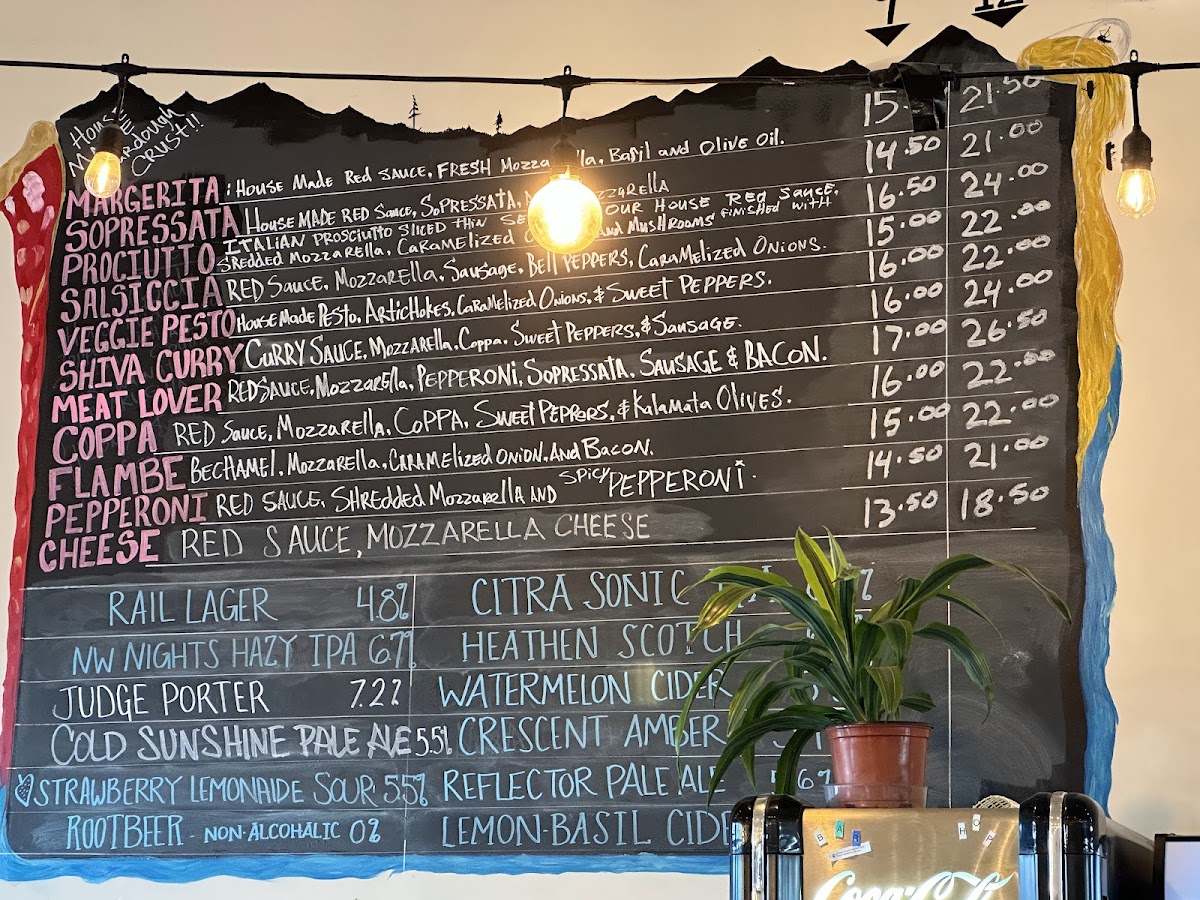 12
House
Sourdough
CRUST!!
15. 21.50
MARGERITA: House Made Red Sauce, FRESH Mozza lla, Basil and Olive Oil. 14.50 21.00
SOPRESSATA House MADE RED Sauce, SOPRESSATA, Mozzarella 16.50 24.00
PROCIUTTO ITALIAN PROSCIUTTO SLICED THIN OUR HOUSE RED Sauce,
SREDDED MOZZARELLA, CARAMELIZED AND MUSHROOMS FINISHED WITH 15.00 22.00
SALSICCIA RED SAUCE, Mozzarella, Sausage, Bell PEPPERS, CaraMelized Onions. 16.00 22.00
VEGGIE PESTO House Made Pesto, Artichokes, Caramelized Onions, & Sweet Peppers. 16.00 24.00
SHIVA CURRY CURRY SAUCE, MOZZARElla, Coppa, Sweet Peppers, & Sausage. 17.00 26.50
MEAT LOVER RED SAUCE, Mozzarella, PEPPERONI, SOPRESSATA, SAUSAGE & BACON. 16.00 22.00
COPPA RED Sauce, Mozzarella, COPPA, Sweet Peppers, & Kalamata Olives. 15.00 22.00
FLAMBE BECHAMEL, Mozzarella, CARAMELIZED ONION, And Bacon. 14.50 21.00
PEPPERONI RED SAUCE, SHREDDED Mozzarella AND SPICY PEPPERONI. 13.50 18.50
CHEESE RED SAUCE, MOZZARELLA CHEESE
RAIL LAGER 4.8% CITRA SONIC
NW NIGHTS HAZY IPA 6.7% HEATHEN SCOTCH
JUDGE PORTER 7.2% WATERMELON CIDER
COLD SUNSHINE PALE ALE 5.5% CRESCENT AMBER
STRAWBERRY LEMONAIDE SOUR 5.5% REFLECTOR PALE ALE
ROOTBEER - NON-ALCOHALIC 0% LEMON-BASIL CIDE
Coca-Cola